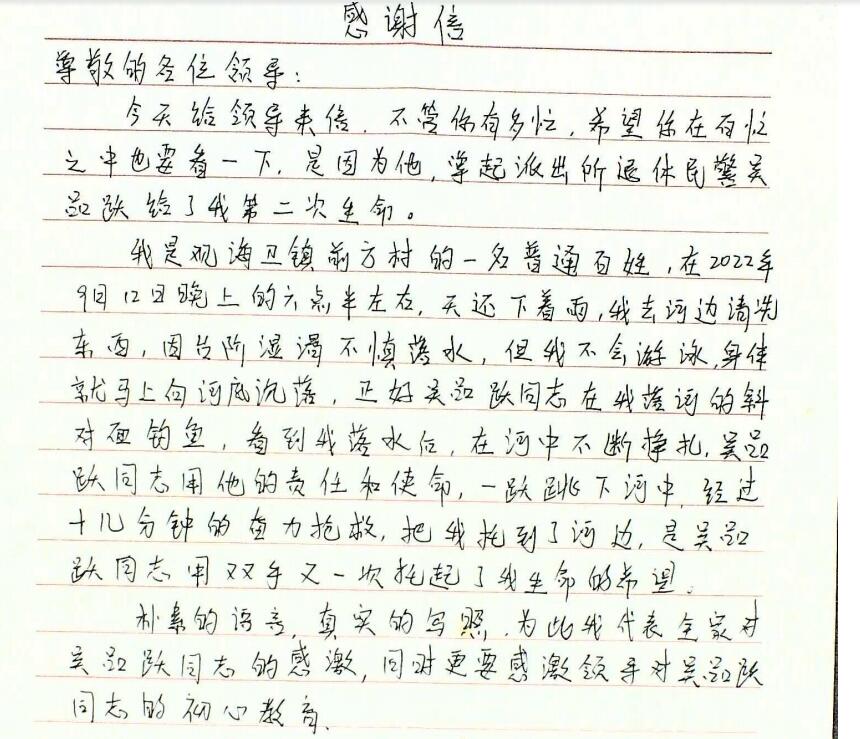 感谢信
尊敬的各位领导：
今天给领导来信，不管你有多忙，希望你在百忙
之中也要看一下，是因为他，掌起派出所退休民警吴
品跃给了我第二次生命。
我是观海卫镇前方村的一名普通百姓，在2022年
9月12日晚上的六点半左右，天还下着雨，我去河边清洗
东西，因台阶湿滑不慎落水，但我不会游泳，身体
就马上向河底沉落，正好吴品跃同志在我落河的斜
对面钓鱼，看到我落水后，在河中不断挣扎，吴品
跃同志用他的责任和使命，一跃跳下河中，经过
十几分钟的奋力抢救，把我托到了河边，是吴品
跃同志用双手又一次托起了我生命的希望。
朴素的语言，真实的写照，为此我代表全家对
吴品跃同志的感激，同时更要感激领导对吴品跃
同志的初心教育。